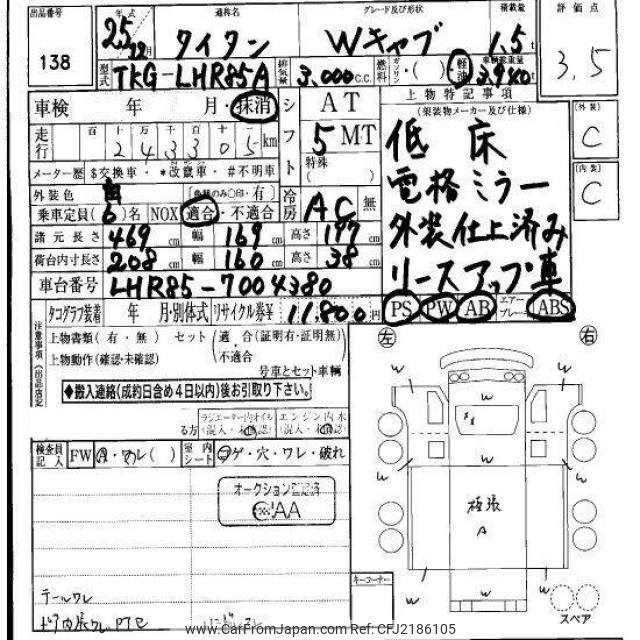 出品番号 年式 通称名 グレード及び形状 積載量 評価点
138 25年12月 タイタン Wキャブ 1.5t 3.5
型式 TKG-LHR85A 排気量 3,000c.c. 燃料 ガソリン・( ) 軽油 車輌総重量
車検 年 月・抹消 シフト AT 5MT 特殊( )
上物特記事項
(架装物メーカー及び仕様)
走行 百 十 万 千 百 十 243305 km
メーター歴 $交換車・*改竄車・#不明車
外装色 有
冷房 AC 無
乗車定員(6)名 NOX 適合・不適合
諸元長さ 469cm 幅 169cm 高さ 197cm
荷台内寸長さ 208cm 幅 160cm 高さ 38cm
車台番号 LHR85-7004380
低床
電格ミラー
外装仕上済み
リースアップ車
タコグラフ装着 年 月・別体式 リサイクル券¥ 11,800円
PS PW AB エアーブレーキ ABS
[外装] C
[内装] C
注意事項
上物書類(有・無) セット 適合(証明有・証明無)・不適合
上物動作(確認・未確認) 号車とセット車輌
◆搬入連絡(成約日含め4日以内)後お引取り下さい。
ラジエーター内オイル エンジン内水
検査員記入 FW 室内シート コゲ・穴・ワレ・破れ
オークション
左 右
W W W W W W W W W
板張
A
キーコーナー
スペア
テールワレ
www.CarFromJapan.com Ref: CFJ2186105